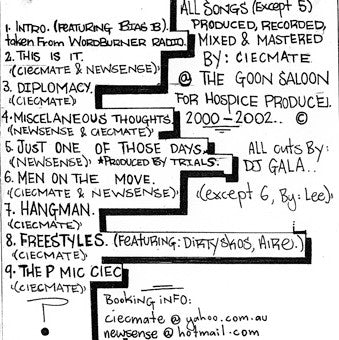 1. INTRO. (FEATURING BIAS B).
taken From WORDBURNER RADIO.
2. THIS IS IT.
(CIECMATE & NEWSENSE)
3. DIPLOMACY.
(CIECMATE)
4. MISCELANEOUS THOUGHTS.
(NEWSENSE & CIECMATE)
5. JUST ONE OF THOSE DAYS.
(NEWSENSE) *PRODUCED BY TRIALS.
6. MEN ON THE MOVE.
(CIECMATE & NEWSENSE)
7. HANGMAN.
(CIECMATE)
8. FREESTYLES. (FEATURING: DIRTY SKOS, AIRE.)
(CIECMATE)
9. THE P MIC CIEC
(CIECMATE)
P!
ALL SONGS (EXCEPT 5)
PRODUCED, RECORDED,
MIXED & MASTERED
BY: CIECMATE
@ THE GOON SALOON
FOR HOSPICE PRODUCE].
2000-2002.. ©
ALL CUTS BY:
DJ GALA..
(except 6, By: Lee)
BOOKING INFO:
ciecmate @ yahoo.com.au
newsense @ hotmail.com